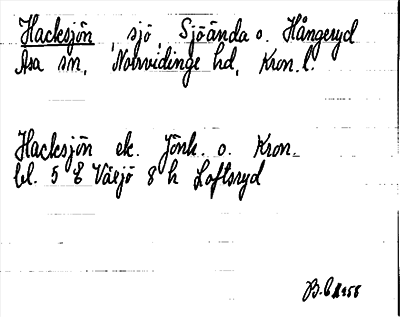 Hacksjön, sjö, Sjöända o. Hångeryd
Asa sn, Norrvidinge hd, Kron. l.
Hacksjön ek. Jönk. o. Kron.
bl. 5 E Växjö 8 h Loftsryd